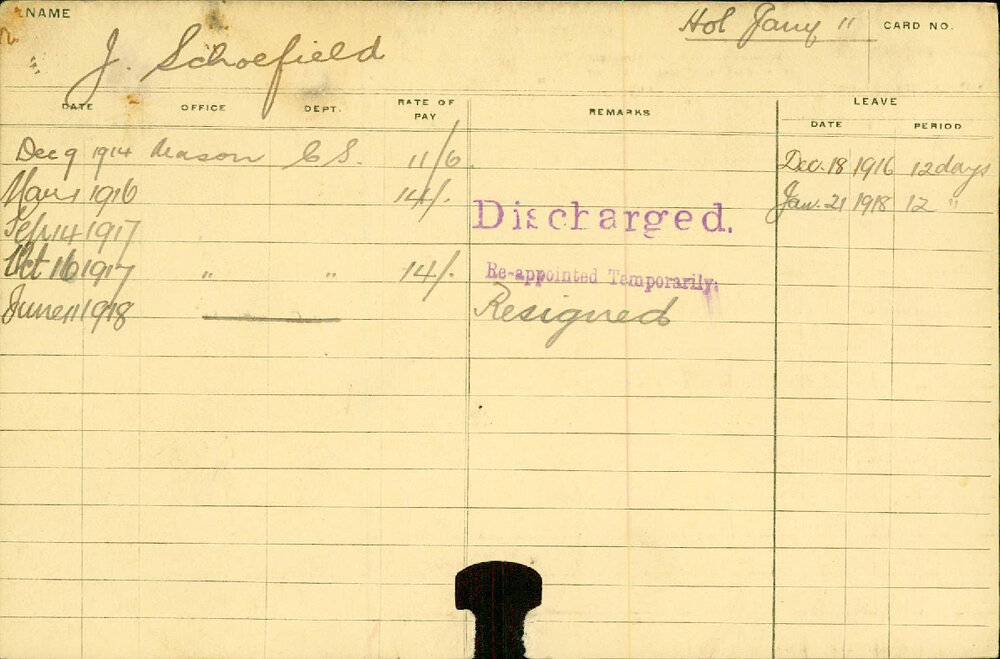 NAME
Hol Jany "
CARD NO.
J. Schoefield
DATE OFFICE DEPT. RATE OF PAY REMARKS LEAVE
DATE PERIOD
Dec 9 1914 Mason C S. 11/6 Dec. 18 1916 12 days
Mar 1 1916 14/. Jan. 21 1918 12 "
Sep 14 1917 Discharged.
Oct 16 1917 " " 14/. Re-appointed Temporarily.
June 11 1918 Resigned